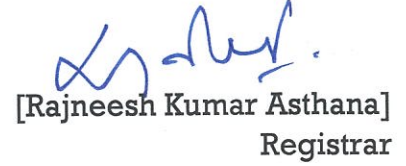 [Rajneesh Kumar Asthana]
Registrar